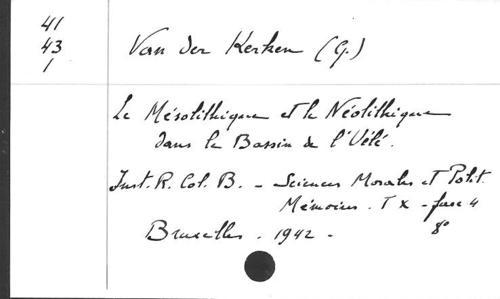 41
43
1
Van der Kerken (G.)
Le Mésolithique et le Néolithique
dans le Bassin de l'Uélé.
Inst. R. Col. B. - Sciences Morales et Polit.
Mémoires. T X - fasc 4
8°
Bruxelles - 1942 -